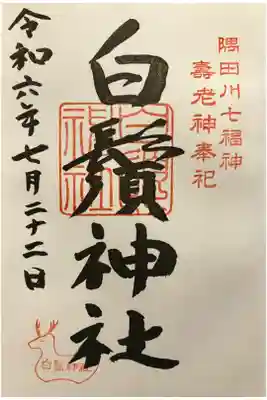 隅田川七福神
壽老神奉祀
白鬚神社
令和六年七月二十二日
白鬚神社